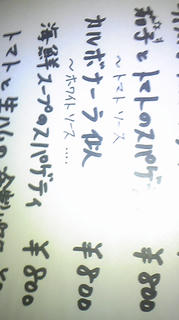 茄子とトマトのスパゲティ ¥800
～トマトソース
カルボナーラ似 ¥800
～ホワイトソース‥‥
海鮮スープのスパゲティ ¥800
トマトと生ハムの